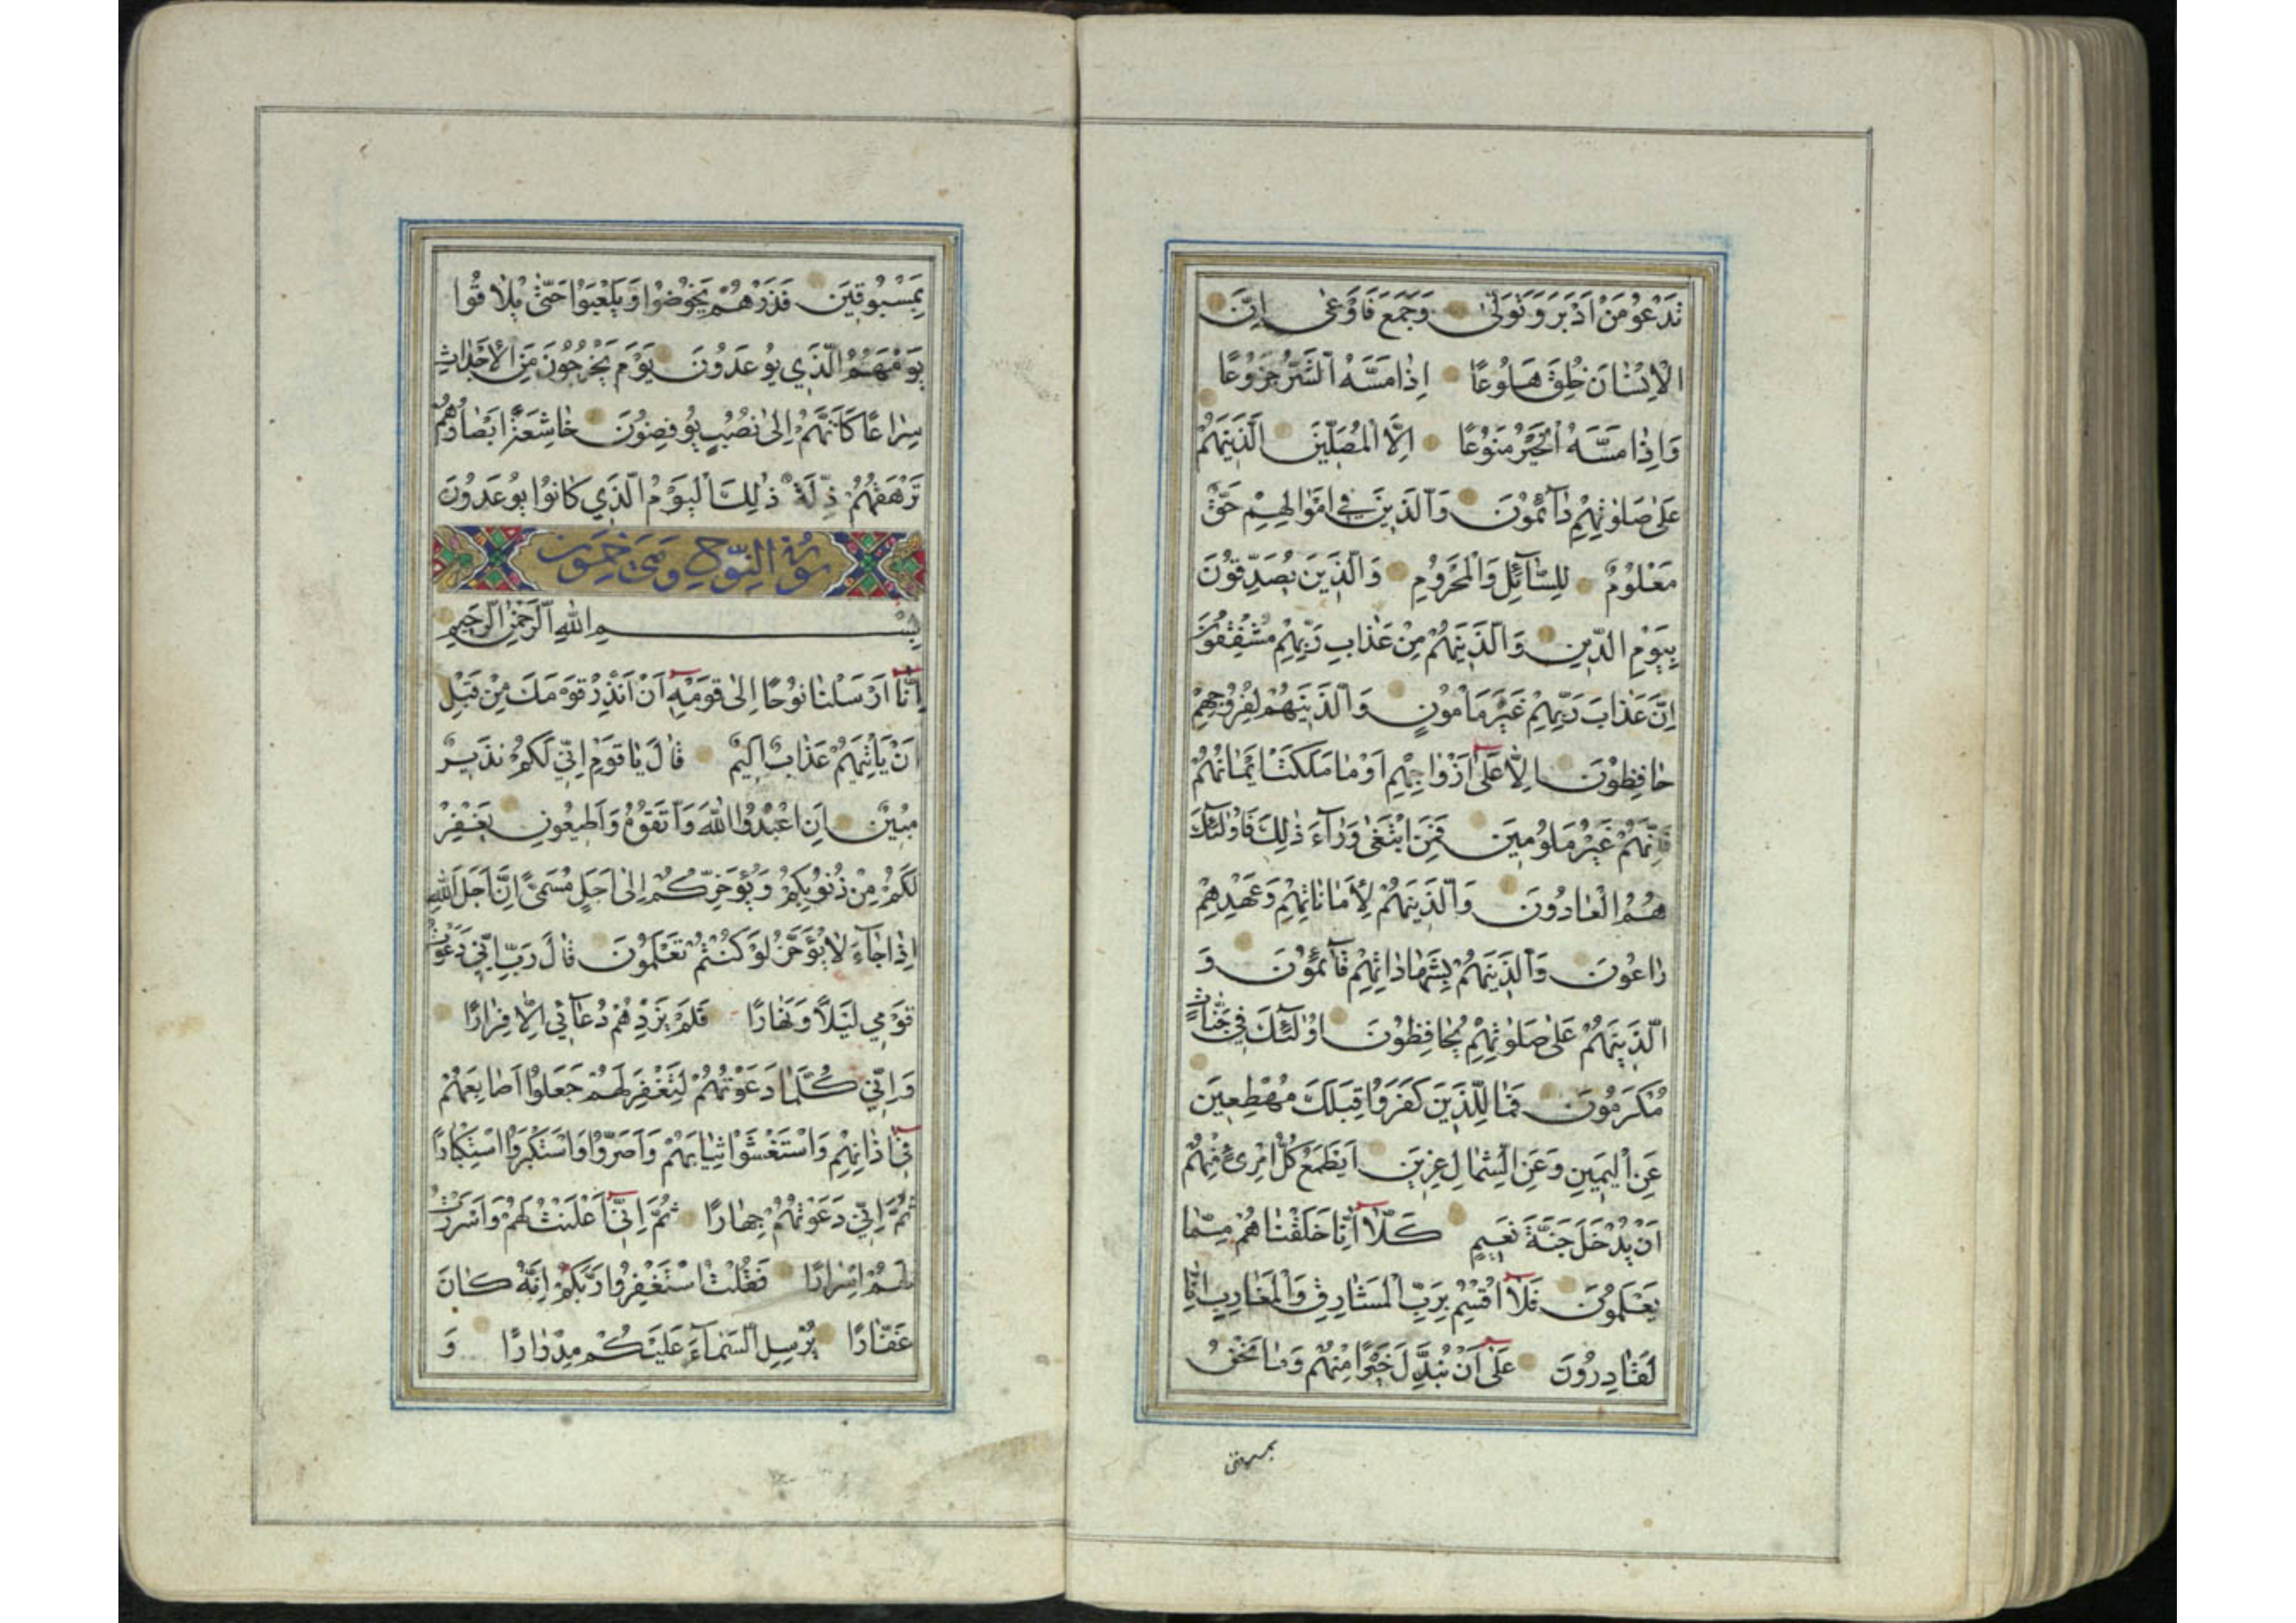 تَدْعُو مَنْ اَدْبَرَ وَتَوَلّٰى وَجَمَعَ فَاَوْعٰى اِنَّ
الْاِنْسٰانَ خُلِقَ هَلُوعًا اِذٰا مَسَّهُ الشَّرُّ جَزُوعًا
وَاِذٰا مَسَّهُ الْخَيْرُ مَنُوعًا اِلَّا الْمُصَلّينَ الَّذينَهُمْ
عَلٰى صَلٰوتِهِمْ دٰآئِمُونَ وَالَّذينَ في اَمْوٰالِهِمْ حَقٌّ
مَعْلُومٌ لِلسّٰآئِلِ وَالْمَحْرُومِ وَالَّذينَ يُصَدِّقُونَ
بِيَوْمِ الدّينِ وَالَّذينَهُمْ مِنْ عَذٰابِ رَبِّهِمْ مُشْفِقُونَ
اِنَّ عَذٰابَ رَبِّهِمْ غَيْرُ مَأْمُونٍ وَالَّذينَهُمْ لِفُرُوجِهِمْ
حٰافِظُونَ اِلّٰا عَلٰٓى اَزْوٰاجِهِمْ اَوْ مٰا مَلَكَتْ اَيْمٰانُهُمْ
فَاِنَّهُمْ غَيْرُ مَلُومينَ فَمَنِ ابْتَغٰى وَرٰآءَ ذٰلِكَ فَاُولٰٓئِكَ
هُمُ الْعٰادُونَ وَالَّذينَهُمْ لِاَمٰانٰاتِهِمْ وَعَهْدِهِمْ
رٰاعُونَ وَالَّذينَهُمْ بِشَهٰادٰاتِهِمْ قٰآئِمُونَ وَ
الَّذينَهُمْ عَلٰى صَلٰوتِهِمْ يُحٰافِظُونَ اُولٰٓئِكَ في جَنّٰاتٍ
مُكْرَمُونَ فَمٰا لِلَّذينَ كَفَرُوا قِبَلَكَ مُهْطِعينَ
عَنِ الْيَمينِ وَعَنِ الشِّمٰالِ عِزينَ اَيَطْمَعُ كُلُّ امْرِئٍ مِنْهُمْ
اَنْ يُدْخَلَ جَنَّةَ نَعيمٍ كَلّٰٓا اِنّٰا خَلَقْنٰاهُمْ مِمّٰا
يَعْلَمُونَ فَلٰٓا اُقْسِمُ بِرَبِّ الْمَشٰارِقِ وَالْمَغٰارِبِ اِنّٰا
لَقٰادِرُونَ عَلٰٓى اَنْ نُبَدِّلَ خَيْرًا مِنْهُمْ وَمٰا نَحْنُ
بمسبوقين
بِمَسْبُوقينَ فَذَرْهُمْ يَخُوضُوا وَيَلْعَبُوا حَتّٰى يُلٰاقُوا
يَوْمَهُمُ الَّذي يُوعَدُونَ يَوْمَ يَخْرُجُونَ مِنَ الْاَجْدٰاثِ
سِرٰاعًا كَاَنَّهُمْ اِلٰى نُصُبٍ يُوفِضُونَ خٰاشِعَةً اَبْصٰارُهُمْ
تَرْهَقُهُمْ ذِلَّةٌ ذٰلِكَ الْيَوْمُ الَّذي كٰانُوا يُوعَدُونَ
سورة النّوح وهي خمسون
بِسْمِ اللّٰهِ الرَّحْمٰنِ الرَّحيمِ
اِنّٰٓا اَرْسَلْنٰا نُوحًا اِلٰى قَوْمِهٓ اَنْ اَنْذِرْ قَوْمَكَ مِنْ قَبْلِ
اَنْ يَأْتِيَهُمْ عَذٰابٌ اَليمٌ قٰالَ يٰا قَوْمِ اِنّي لَكُمْ نَذيرٌ
مُبينٌ اَنِ اعْبُدُوا اللّٰهَ وَاتَّقُوهُ وَاَطيعُونِ يَغْفِرْ
لَكُمْ مِنْ ذُنُوبِكُمْ وَيُؤَخِّرْكُمْ اِلٰى اَجَلٍ مُسَمًّى اِنَّ اَجَلَ اللّٰهِ
اِذٰا جٰآءَ لٰا يُؤَخَّرُ لَوْ كُنْتُمْ تَعْلَمُونَ قٰالَ رَبِّ اِنّي دَعَوْتُ
قَوْمي لَيْلًا وَنَهٰارًا فَلَمْ يَزِدْهُمْ دُعٰآئي اِلّٰا فِرٰارًا
وَاِنّي كُلَّمٰا دَعَوْتُهُمْ لِتَغْفِرَ لَهُمْ جَعَلُوا اَصٰابِعَهُمْ
فيٓ اٰذٰانِهِمْ وَاسْتَغْشَوْا ثِيٰابَهُمْ وَاَصَرُّوا وَاسْتَكْبَرُوا اسْتِكْبٰارًا
ثُمَّ اِنّي دَعَوْتُهُمْ جِهٰارًا ثُمَّ اِنّيٓ اَعْلَنْتُ لَهُمْ وَاَسْرَرْتُ
لَهُمْ اِسْرٰارًا فَقُلْتُ اسْتَغْفِرُوا رَبَّكُمْ اِنَّهُ كٰانَ
غَفّٰارًا يُرْسِلِ السَّمٰآءَ عَلَيْكُمْ مِدْرٰارًا وَ